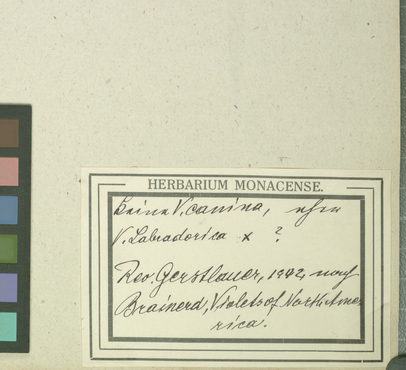 HERBARIUM MONACENSE.
Keine V. canina, eher
V. Labradorica x ?
Rev. Gerstlauer, 1942, nach
Brainerd, Violets of North Ame-
rica.